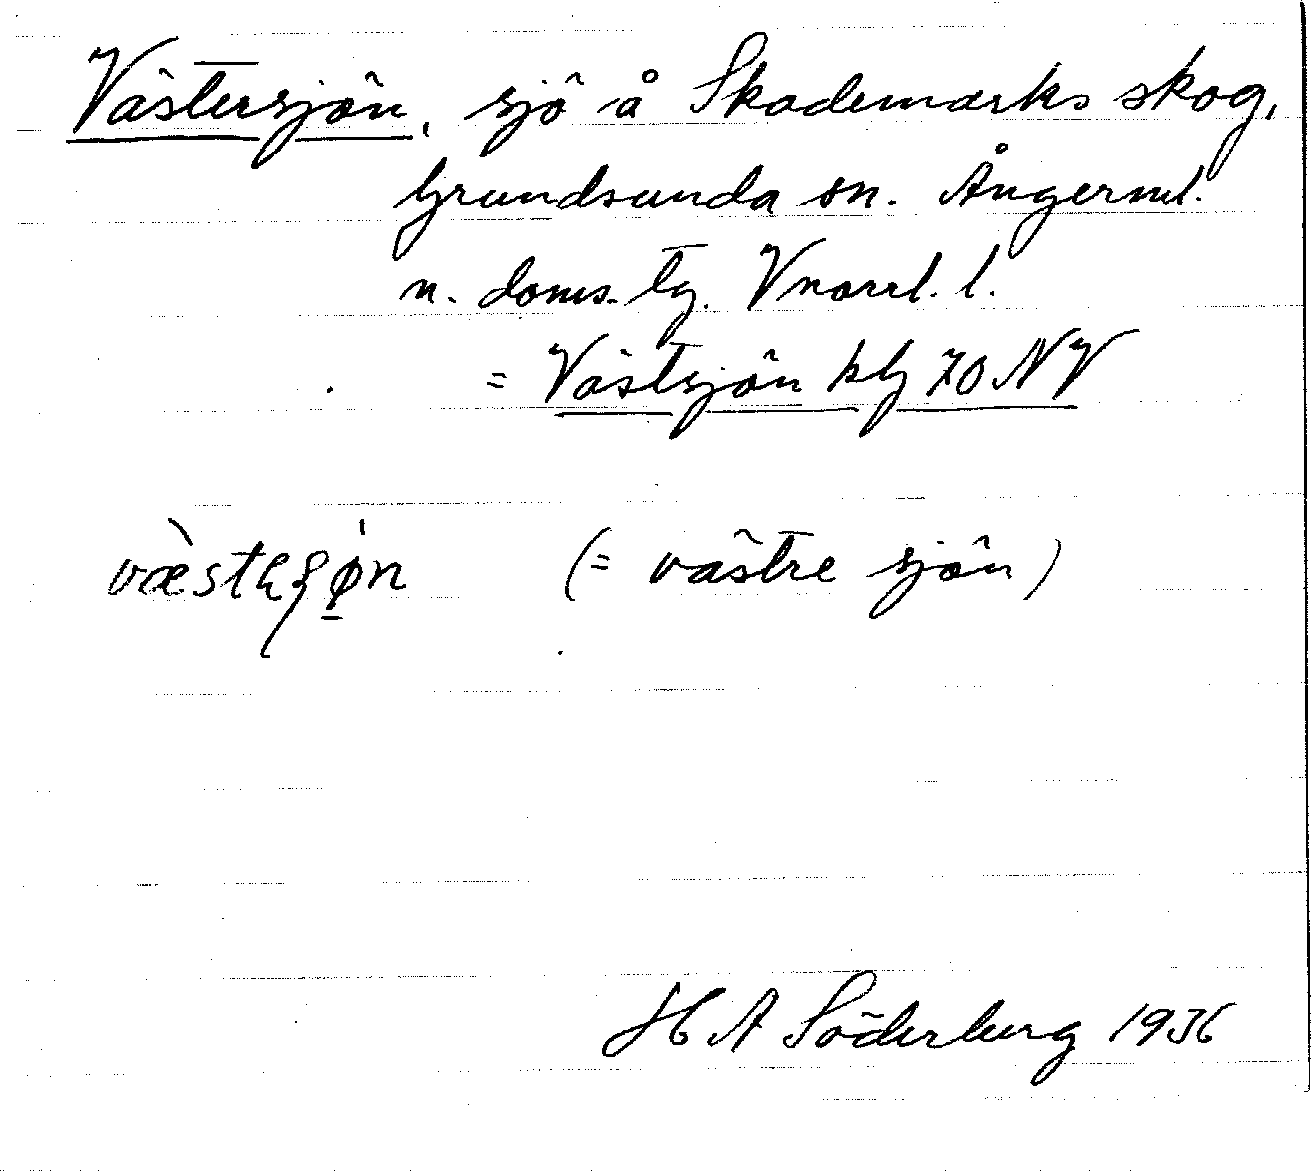 Västersjön, sjö å Skademarks skog,
Grundsunda sn. Ångerml.
n. doms. tg. Vnorrl. l.
= Västsjön kbl 70 NV
(= västre sjön)
H A Söderberg 1936